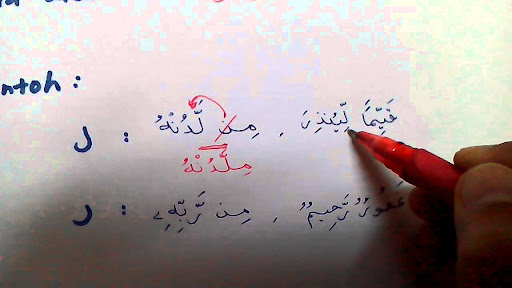 ntoh :
قَيِّمًا لِّيُنذِرَ ، مِن لَّدُنْهُ : ل
مِلَّدُنْهُ
غَفُورٌ رَّحِيمٌ ، مِن رَّبِّهِۦ : ر